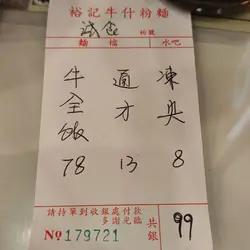 裕記牛什粉麵
誠食 枱號
麵檔 水吧
牛全飯 通才 凍奥
78 13 8
請持單到收銀處付款
多謝光臨
共銀 99
№ 179721